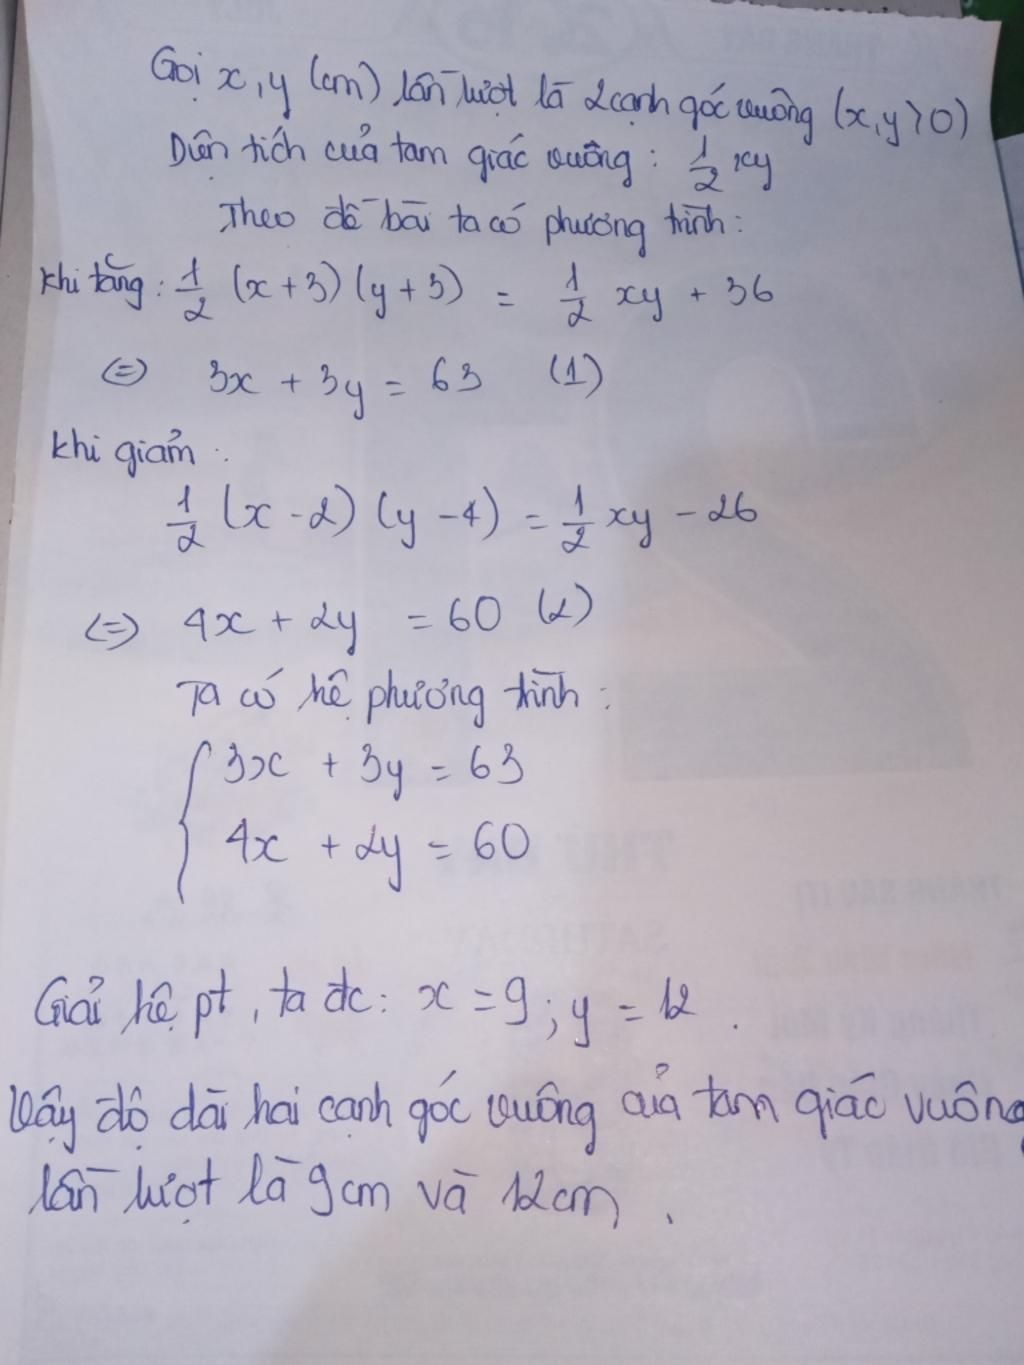 Gọi x, y (cm) lần lượt là 2 cạnh góc vuông (x, y > 0)
Diện tích của tam giác vuông : 1/2 xy
Theo đề bài ta có phương trình :
Khi tăng : 1/2 (x + 3) (y + 3) = 1/2 xy + 36
<=> 3x + 3y = 63 (1)
Khi giảm :
1/2 (x - 2) (y - 4) = 1/2 xy - 26
<=> 4x + 2y = 60 (2)
Ta có hệ phương trình :
{ 3x + 3y = 63
4x + 2y = 60
Giải hệ pt, ta đc : x = 9 ; y = 12 .
Vậy độ dài hai cạnh góc vuông của tam giác vuông
lần lượt là 9cm và 12cm .